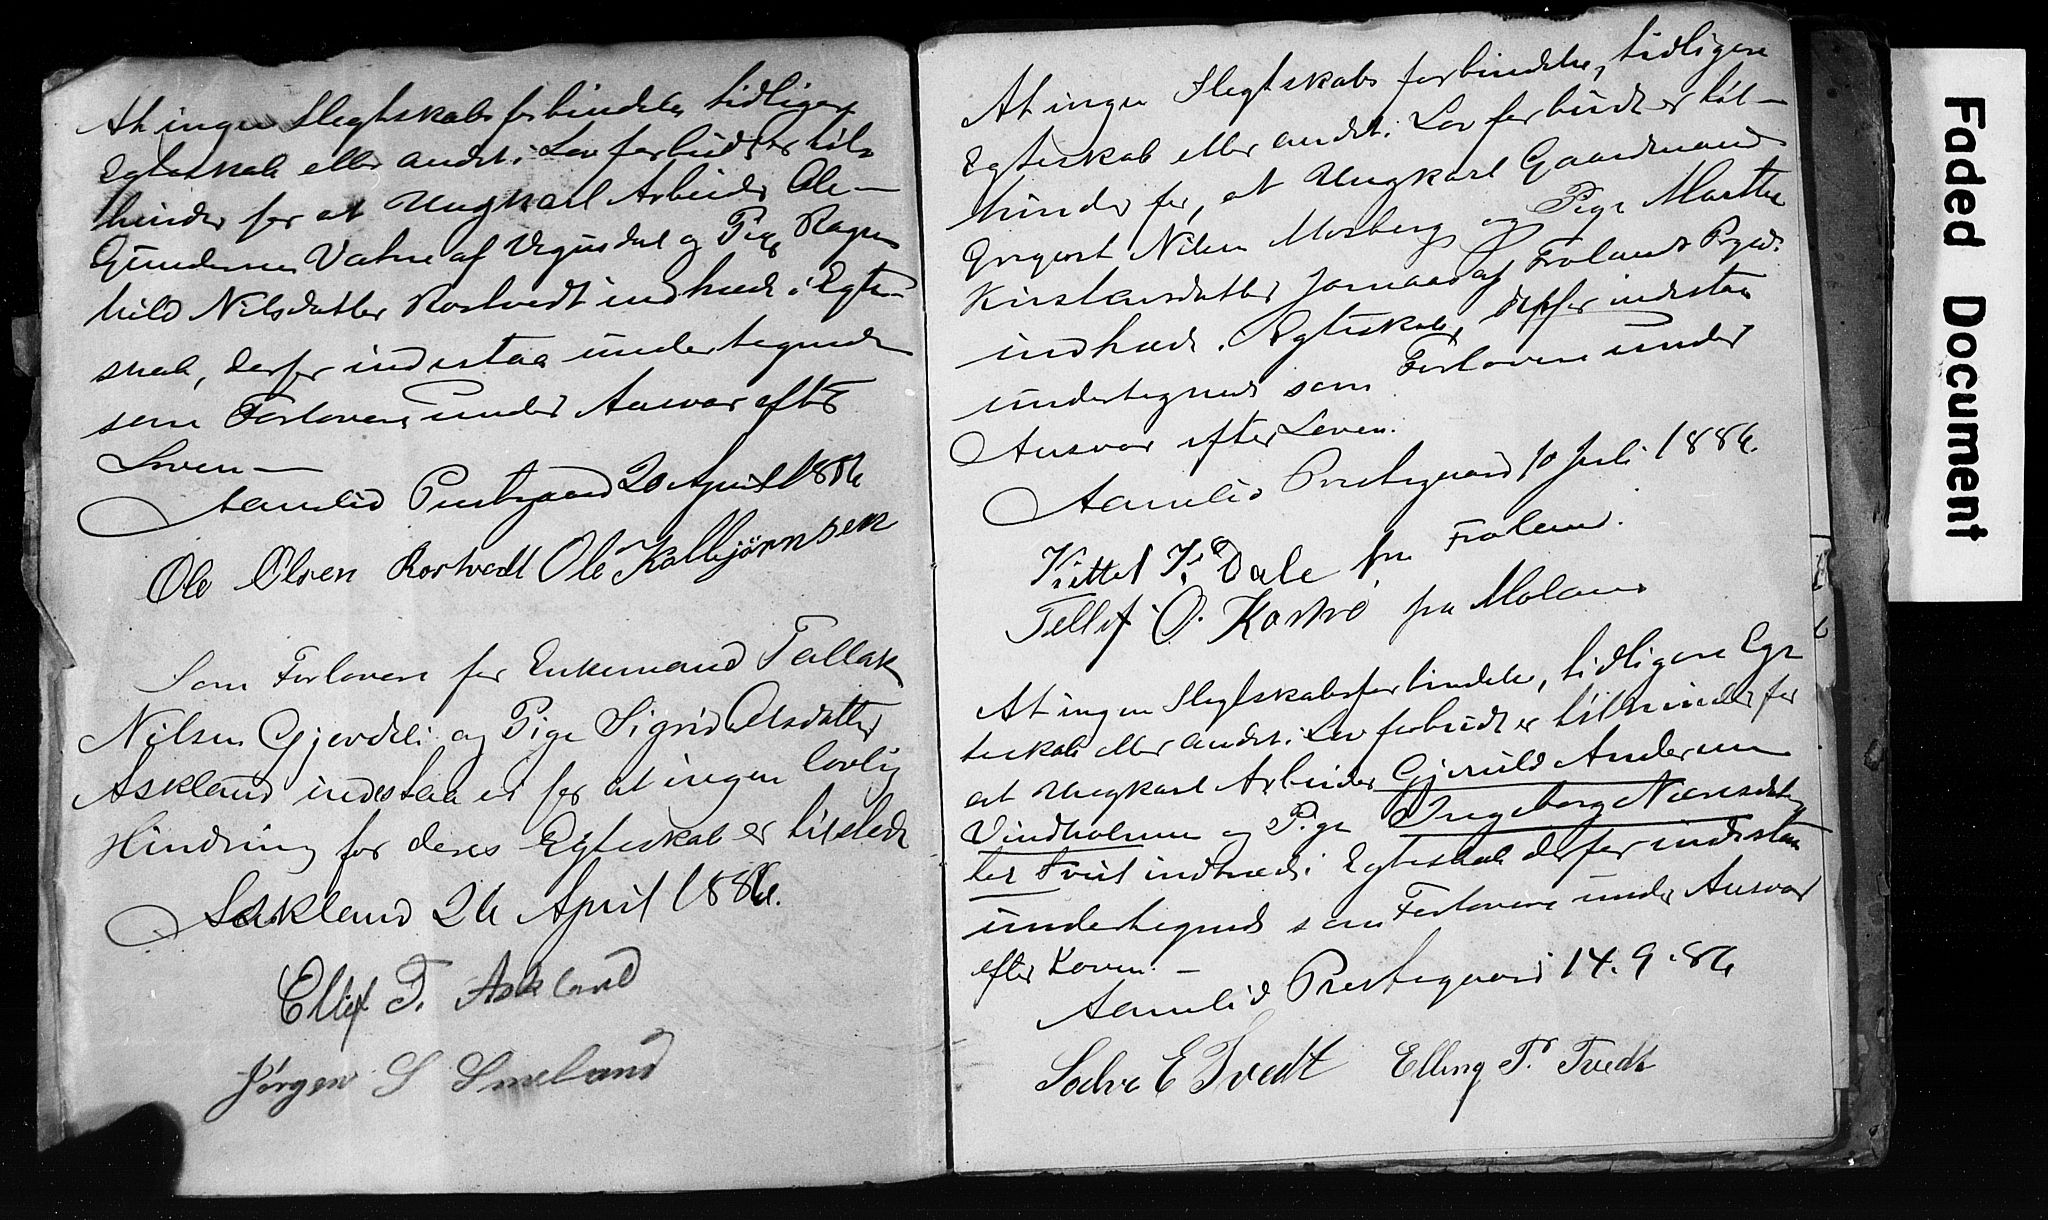 At ingen Slegtskabsforbindelse, tidligere
Egteskab eller andet i Lov forbudt er til-
hinder for at Ungkarl Arbeider Ole
Gundersen Vatne af Vegusdal og Pige Ragn-
hild Nilsdatter Rostvedt indtræde i Egte-
skab, derfor indestaa undertegnede
som Forlovere under Ansvar efter
Loven —
Aamlid Prestegaard 20 April 1886
Ole Olsen Rostvedt Ole Kallbjörnsen
Som Forlovere for Enkemand Tallak
Nilsen Gjevdeli og Pige Sigrid Olsdatter
Askland indestaa vi for at ingen lovlig
Hindring for deres Egteskab er tilstede
Askland 26 April 1886.
Ellef T. Askland
Jørgen S Smeland
At ingen Slegtskabsforbindelse, tidligere
Egteskab eller andet i Lov forbudt er til-
hinder for, at Ungkarl Gaardmand
Gregert Nilsen Mosberg og Pige Marthe
Kirstensdatter Jomaas af Frolands Prgjd.
indtræde i Egteskab, derfor indestaa
undertegnede som Forlovere under
Ansvar efter Loven.
Aamlid Prestegaard 10 Juli 1886.
Kittel K. Dale fra Froland.
Tellef O. Kastvé fra Moland
At ingen Slegtskabsforbindelse, tidligere Eg-
teskab eller andet i Lov forbudt er tilhinder for
at Ungkarl Arbeider Gjeruld Andersen
Vindholmen og Pige Ingeborg Næresdat-
ter Tveit indtræde i Egteskab derfor indestaa
undertegnede som Forlovere under Ansvar
efter Loven. —
Aamlid Prestegaard 14.9.86
Salve E Tvedt Elling T. Tvedt
Faded Document